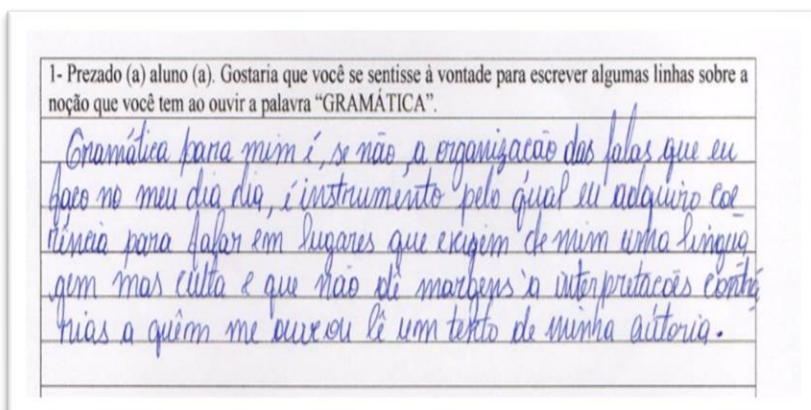 1- Prezado (a) aluno (a). Gostaria que você se sentisse à vontade para escrever algumas linhas sobre a
noção que você tem ao ouvir a palavra “GRAMÁTICA”.
Gramática para mim é, se não, a organizacão das falas que eu
faço no meu dia dia, é instrumento pelo qual eu adquiro coe
rência para falar em lugares que exigem de mim uma lingua
gem mas culta e que não dê margens à interpretacões contrá
rias a quém me ouve ou lê um texto de minha autoria.